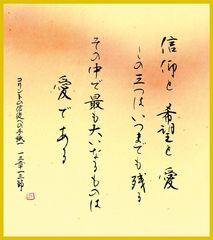 信仰と希望と愛
この三つはいつまでも残る
その中で最も大いなるものは
愛である
コリントの信徒への手紙 一三章一三節